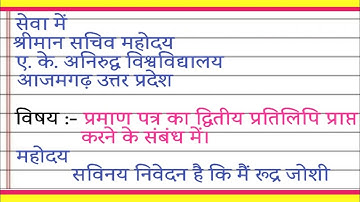 सेवा में
श्रीमान सचिव महोदय
ए. के. अनिरुद्ध विश्वविद्यालय
आजमगढ़ उत्तर प्रदेश
विषय :- प्रमाण पत्र का द्वितीय प्रतिलिपि प्राप्त
करने के संबंध में।
महोदय
सविनय निवेदन है कि मैं रूद्र जोशी